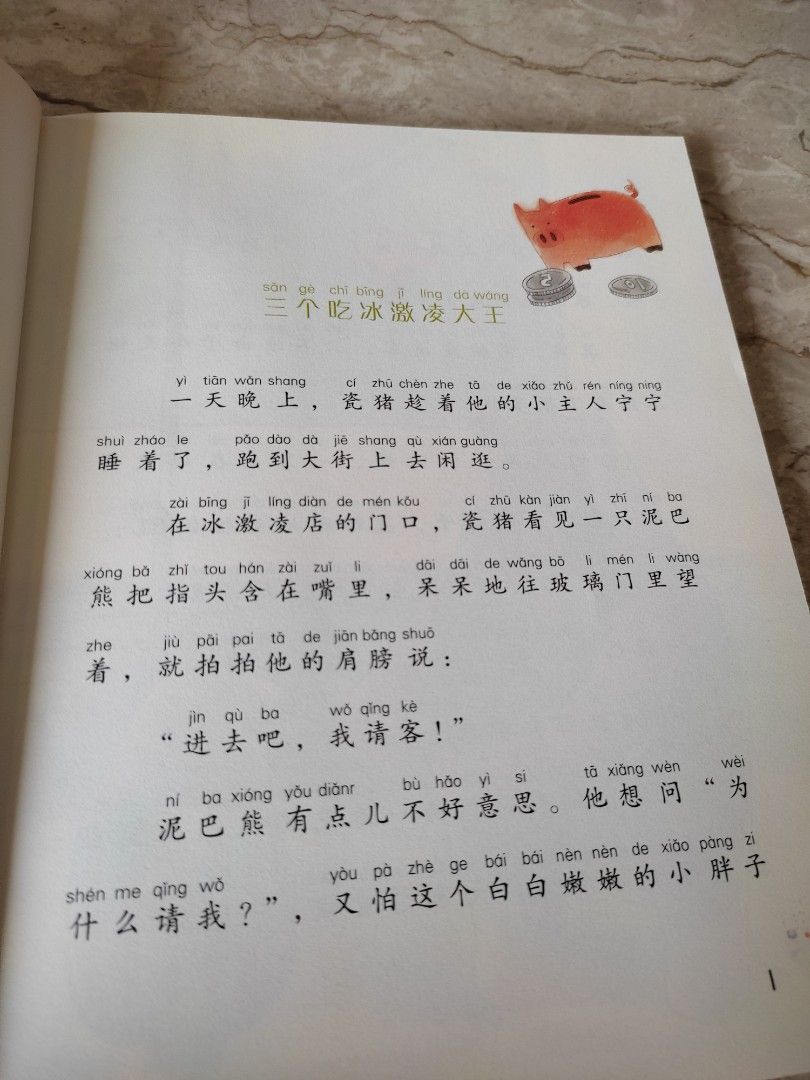 sān gè chī bīng jī líng dà wáng
三个吃冰激凌大王
5
10
yì tiān wǎn shang cí zhū chèn zhe tā de xiǎo zhǔ rén níng níng
一天晚上，瓷猪趁着他的小主人宁宁
shuì zháo le pǎo dào dà jiē shang qù xián guàng
睡着了，跑到大街上去闲逛。
zài bīng jī líng diàn de mén kǒu cí zhū kàn jiàn yì zhī ní ba
在冰激凌店的门口，瓷猪看见一只泥巴
xióng bǎ zhǐ tou hán zài zuǐ li dāi dāi de wǎng bō li mén li wàng
熊把指头含在嘴里，呆呆地往玻璃门里望
zhe jiù pāi pai tā de jiān bǎng shuō
着，就拍拍他的肩膀说：
jìn qù ba wǒ qǐng kè
“进去吧，我请客！”
ní ba xióng yǒu diǎnr bù hǎo yì si tā xiǎng wèn wèi
泥巴熊有点儿不好意思。他想问“为
shén me qǐng wǒ yòu pà zhè ge bái bái nèn nèn de xiǎo pàng zi
什么请我？”，又怕这个白白嫩嫩的小胖子
1